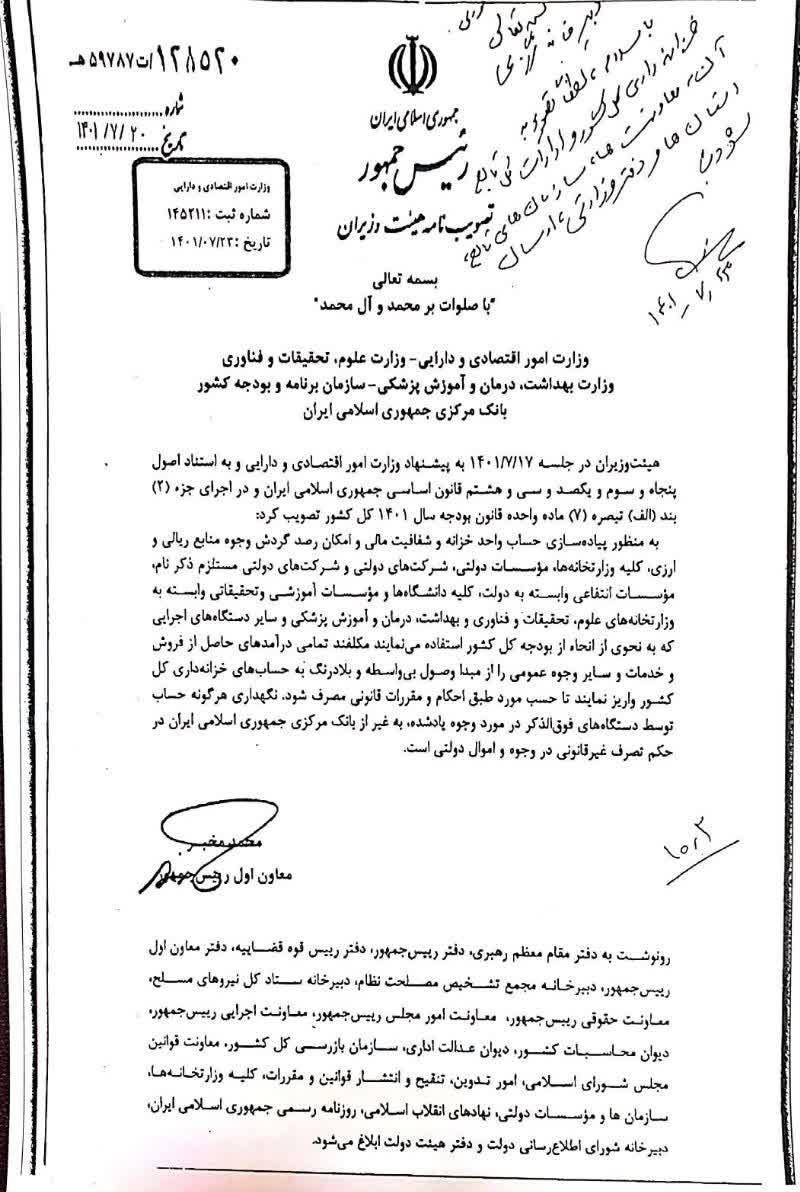 ۱۲۸۵۲۰/ت۵۹۷۸۷هـ
شماره
۱۴۰۱/۷/۲۰
تاریخ
جمهوری اسلامی ایران
رئیس جمهور
تصویب نامه هیئت وزیران
وزارت امور اقتصادی و دارایی
شماره ثبت :۱۴۵۲۱۱
تاریخ :۱۴۰۱/۰۷/۲۳
با سلام، لطفاً تصویر به
خزانه داری کل کشور و ادارات کل تابع
معاونت ها، سازمان های تابع،
استان ها و دفتر وزارتی، ارسال
شود
۱۴۰۱/۷/۲۳
بسمه تعالی
"با صلوات بر محمد و آل محمد"
وزارت امور اقتصادی و دارایی- وزارت علوم، تحقیقات و فناوری
وزارت بهداشت، درمان و آموزش پزشکی- سازمان برنامه و بودجه کشور
بانک مرکزی جمهوری اسلامی ایران
هیئت‌وزیران در جلسه ۱۴۰۱/۷/۱۷ به پیشنهاد وزارت امور اقتصادی و دارایی و به استناد اصول
پنجاه و سوم و یکصد و سی و هشتم قانون اساسی جمهوری اسلامی ایران و در اجرای جزء (۲)
بند (الف) تبصره (۷) ماده واحده قانون بودجه سال ۱۴۰۱ کل کشور تصویب کرد:
به منظور پیاده‌سازی حساب واحد خزانه و شفافیت مالی و امکان رصد گردش وجوه منابع ریالی و
ارزی، کلیه وزارتخانه‌ها، مؤسسات دولتی، شرکت‌های دولتی و شرکت‌های دولتی مستلزم ذکر نام،
مؤسسات انتفاعی وابسته به دولت، کلیه دانشگاه‌ها و مؤسسات آموزشی وتحقیقاتی وابسته به
وزارتخانه‌های علوم، تحقیقات و فناوری و بهداشت، درمان و آموزش پزشکی و سایر دستگاه‌های اجرایی
که به نحوی از انحاء از بودجه کل کشور استفاده می‌نمایند مکلفند تمامی درآمدهای حاصل از فروش
و خدمات و سایر وجوه عمومی را از مبدا وصول بی‌واسطه و بلادرنگ به حساب‌های خزانه‌داری کل
کشور واریز نمایند تا حسب مورد طبق احکام و مقررات قانونی مصرف شود. نگهداری هرگونه حساب
توسط دستگاه‌های فوق‌الذکر در مورد وجوه یادشده، به غیر از بانک مرکزی جمهوری اسلامی ایران در
حکم تصرف غیرقانونی در وجوه و اموال دولتی است.
محمد مخبر
معاون اول رییس‌جمهور
رونوشت به دفتر مقام معظم رهبری، دفتر رییس‌جمهور، دفتر رییس قوه قضاییه، دفتر معاون اول
رییس‌جمهور، دبیرخانه مجمع تشخیص مصلحت نظام، دبیرخانه ستاد کل نیروهای مسلح،
معاونت حقوقی رییس‌جمهور، معاونت امور مجلس رییس‌جمهور، معاونت اجرایی رییس‌جمهور،
دیوان محاسبات کشور، دیوان عدالت اداری، سازمان بازرسی کل کشور، معاونت قوانین
مجلس شورای اسلامی، امور تدوین، تنقیح و انتشار قوانین و مقررات، کلیه وزارتخانه‌ها،
سازمان ها و مؤسسات دولتی، نهادهای انقلاب اسلامی، روزنامه رسمی جمهوری اسلامی ایران،
دبیرخانه شورای اطلاع‌رسانی دولت و دفتر هیئت دولت ابلاغ می‌شود.